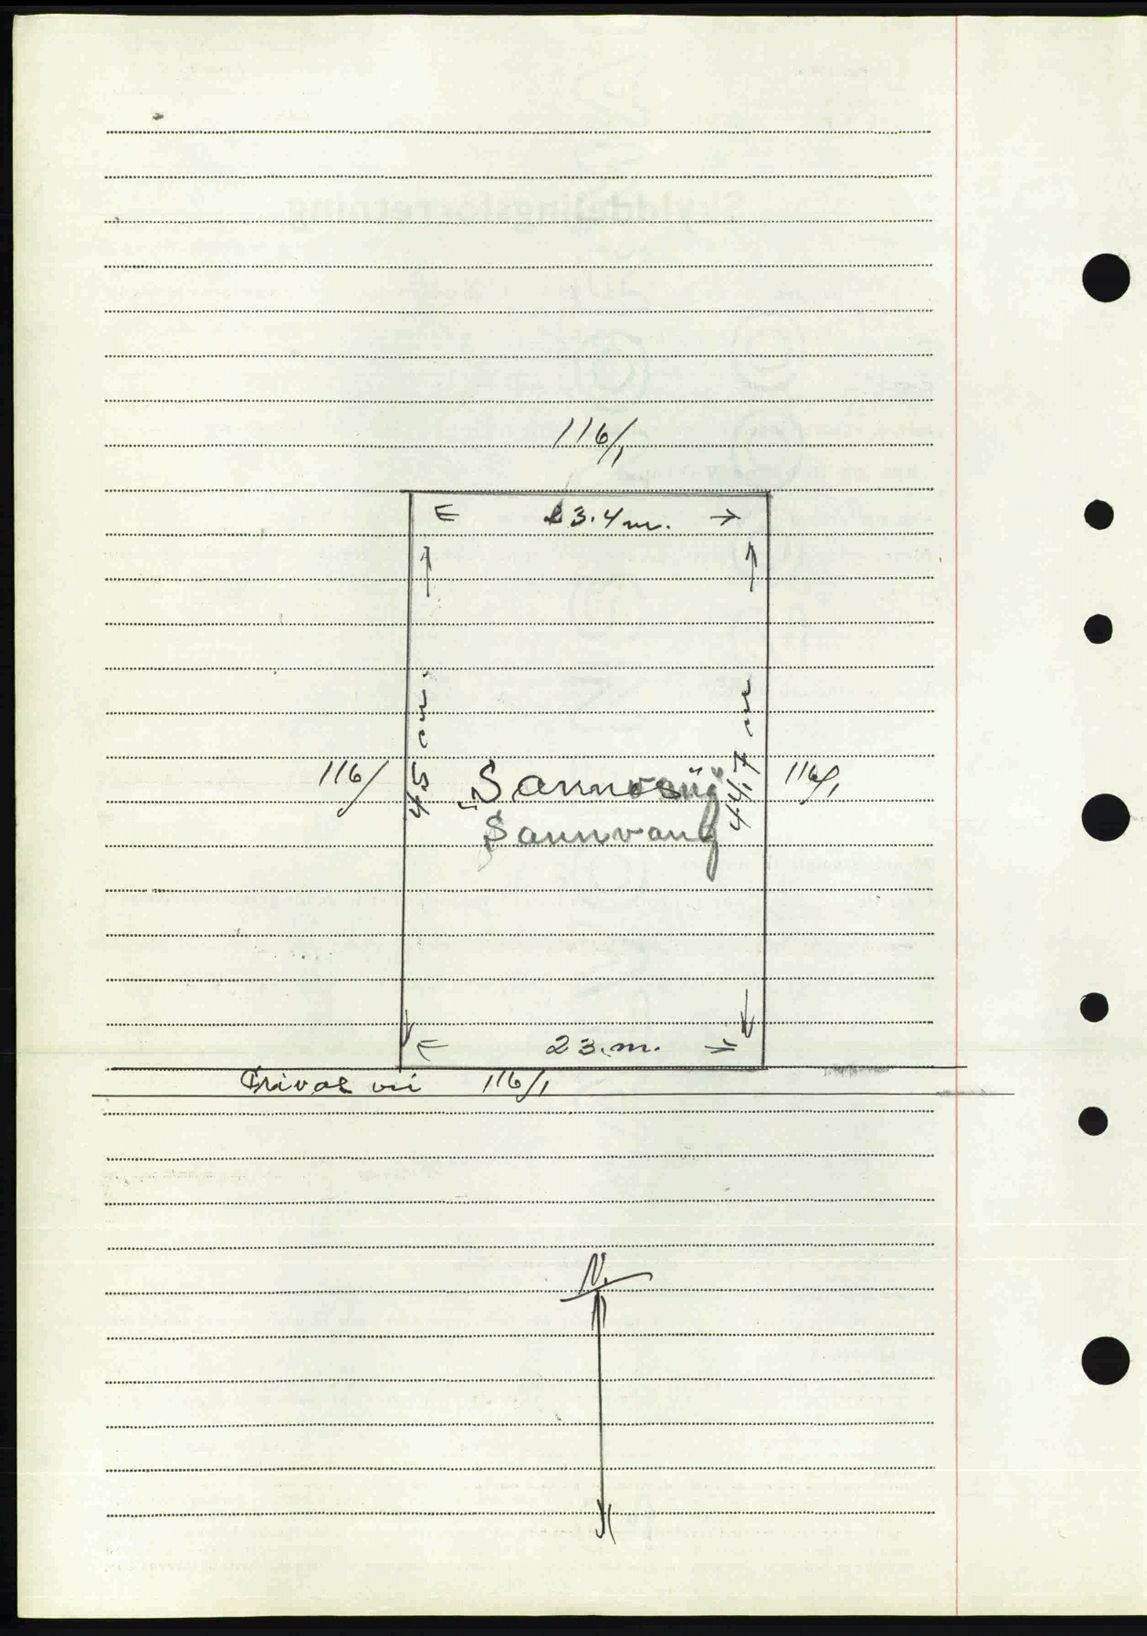 116/1
23.4 m.
45 m.
44,7 m
116/
116/1
Sannvang
23. m.
Privat vei 116/1
N.